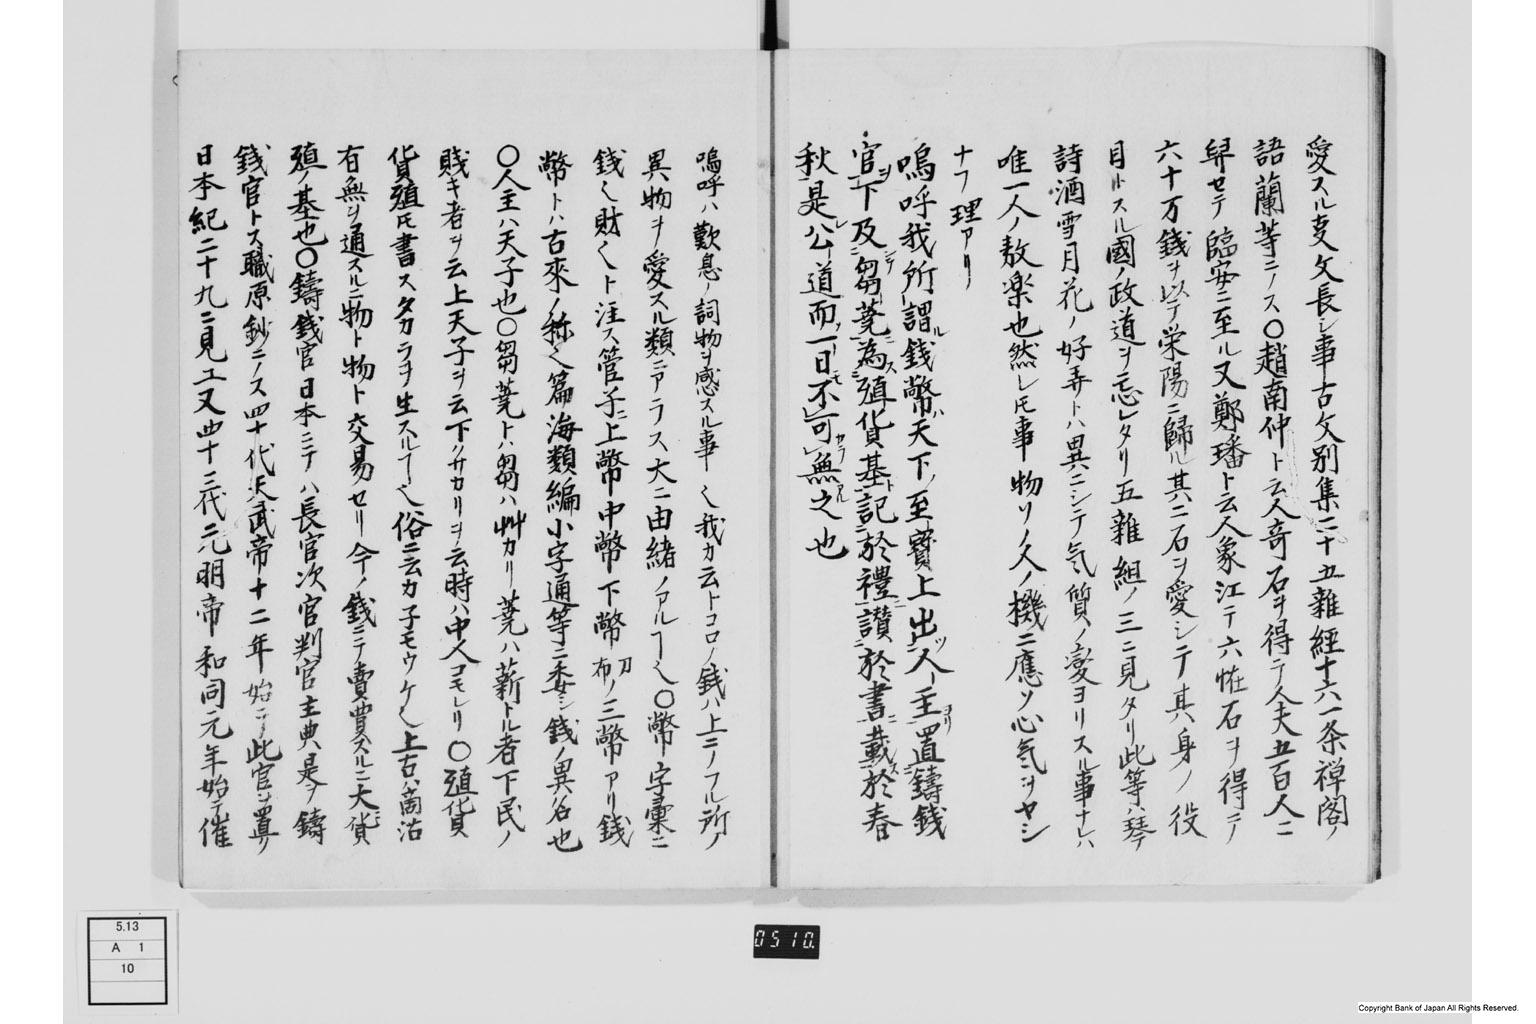 愛スル叓攵長シ事古文别集二十五雜經十六一条禅閣ノ
語蘭等ニノス〇趙南仲ト云人奇石ヲ得テ人夫五百人ニ
舁セテ臨安ニ至ル又鄭璠ト云人象江テ六恠石ヲ得ニテ
六十万錢ヲ以テ栄陽ニ歸ル其二石ヲ愛シテ其身ノ役
目トスル國ノ政道ヲ忘レタリ五雜組ノ三ニ見タリ此等ハ琴
詩酒雪月花ノ好弄トハ異ニシテ気質ノ変ヨリスル事ナレハ
唯一人ノ敖楽也然レ𪜈事物ソノ人ノ機ニ應ソ心気ヲヤシ
ナフ理アリ
嗚呼我所謂ル錢幣ハ天下ノ至寳上出ツ人主ヨリ置鑄錢
官ヲ下及ニシテ芻蕘ニ為ス殖貨基ト記於禮ニ讃於書ニ載ス於春
秋ニ是レ公道而ソ一日モ不レ可カラ無アル之也
嗚呼ハ歎息ノ詞物ヲ感スル事〱我カ云トコロノ錢ハ上ニノフル所ノ
異物ヲ愛スル類ニアラス大ニ由緒ノアルヿ〱〇幣字彙ニ
錢〱財〱ト注ス管子ニ上幣中幣下幣刀布ノ三幣アリ錢
幣トハ古來ノ称〱篇海類編小字通等ニ委シ錢ノ異名也
〇人主ハ天子也〇芻蕘トハ芻ハ艸カリ蕘ハ薪トル者下民ノ
賎キ者ヲ云上天子ヲ云下ノサカリヲ云時ハ中人コモレリ〇殖貨
貨殖𪜈書スタカラヲ生スルヿ〱俗ニ云カ子モウケ〱上古ハ啇沽
有無ヲ通スルニ物ト物ト交易セリ今ノ錢ニテ賣買スルニ大ニ貨
殖ノ基也〇鑄錢官日本ニテハ長官次官判官主典是ヲ鑄
錢官トス職原鈔ニノス四十代天武帝十二年始ニテ此官ヲ置ク
日本紀二十九ニ見エ又四十三代元明帝和同元年始テ催
5.13
A 1
10
0510.
Copyright Bank of Japan All Rights Reserved.